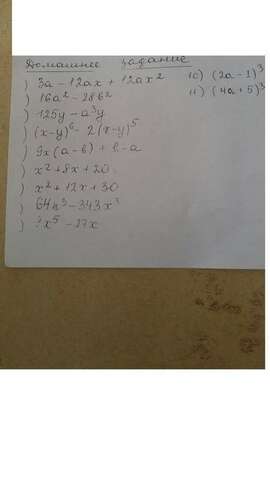 Домашнее задание
) 3a - 12ax + 12ax²
) 16a² - 28b²
) 125y - a³y
) (x-y)⁶ - 2(x-y)⁵
) 9x(a-b) + b - a
) x² + 8x + 20
) x² + 12x + 30
) 64a³ - 343x³
) x⁵ - 27x
10) (2a - 1)³
11) (4a + 5)³